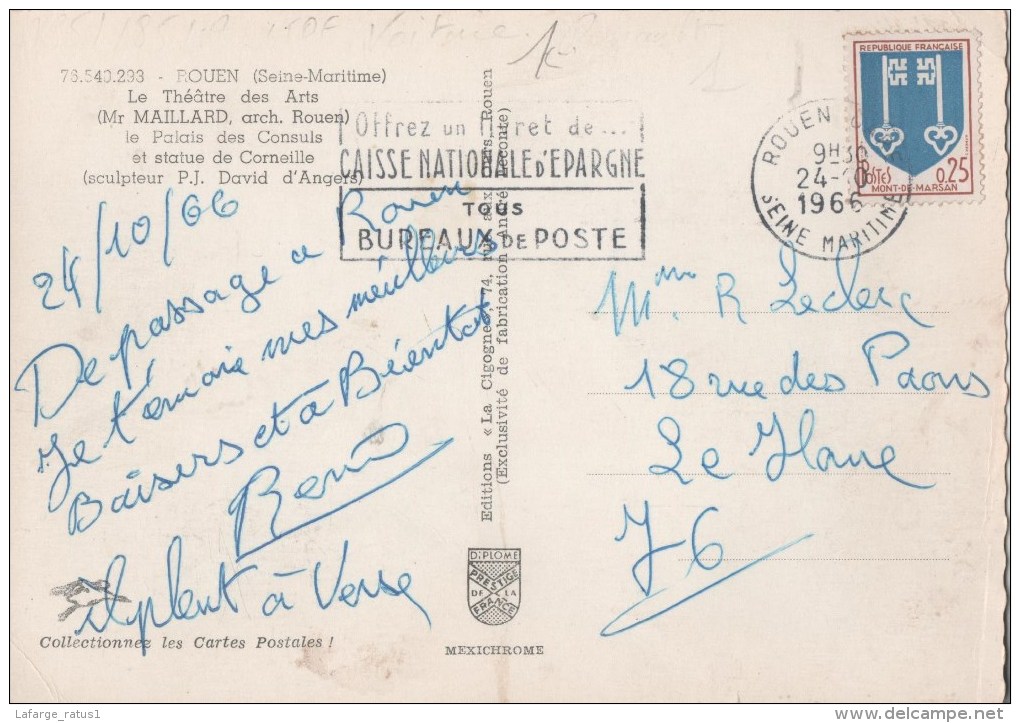 76.540.293 - ROUEN (Seine-Maritime)
Le Théâtre des Arts
(Mr MAILLARD, arch. Rouen)
le Palais des Consuls
et statue de Corneille
(sculpteur P.J. David d'Angers)
24/10/66
De passage a Rouen
Je t'envoie mes meilleurs
Baisers et a Bientot
René
il pleut à Verse
Collectionnez les Cartes Postales !
Offrez un livret de...
CAISSE NATIONALE D'EPARGNE
TOUS
BUREAUX DE POSTE
Editions « La Cigogne », 74, rue aux Ours, Rouen
(Exclusivité de fabrication André Leconte)
DIPLOME
PRESTIGE
DE LA
FRANCE
MEXICHROME
REPUBLIQUE FRANÇAISE
POSTES
0.25
MONT-DE-MARSAN
ROUEN
9H30
24-10
1966
SEINE MARITIME
Mme R Leclerc
18 rue des Paons
Le Havre
76
Lafarge_ratus1
www.delcampe.net